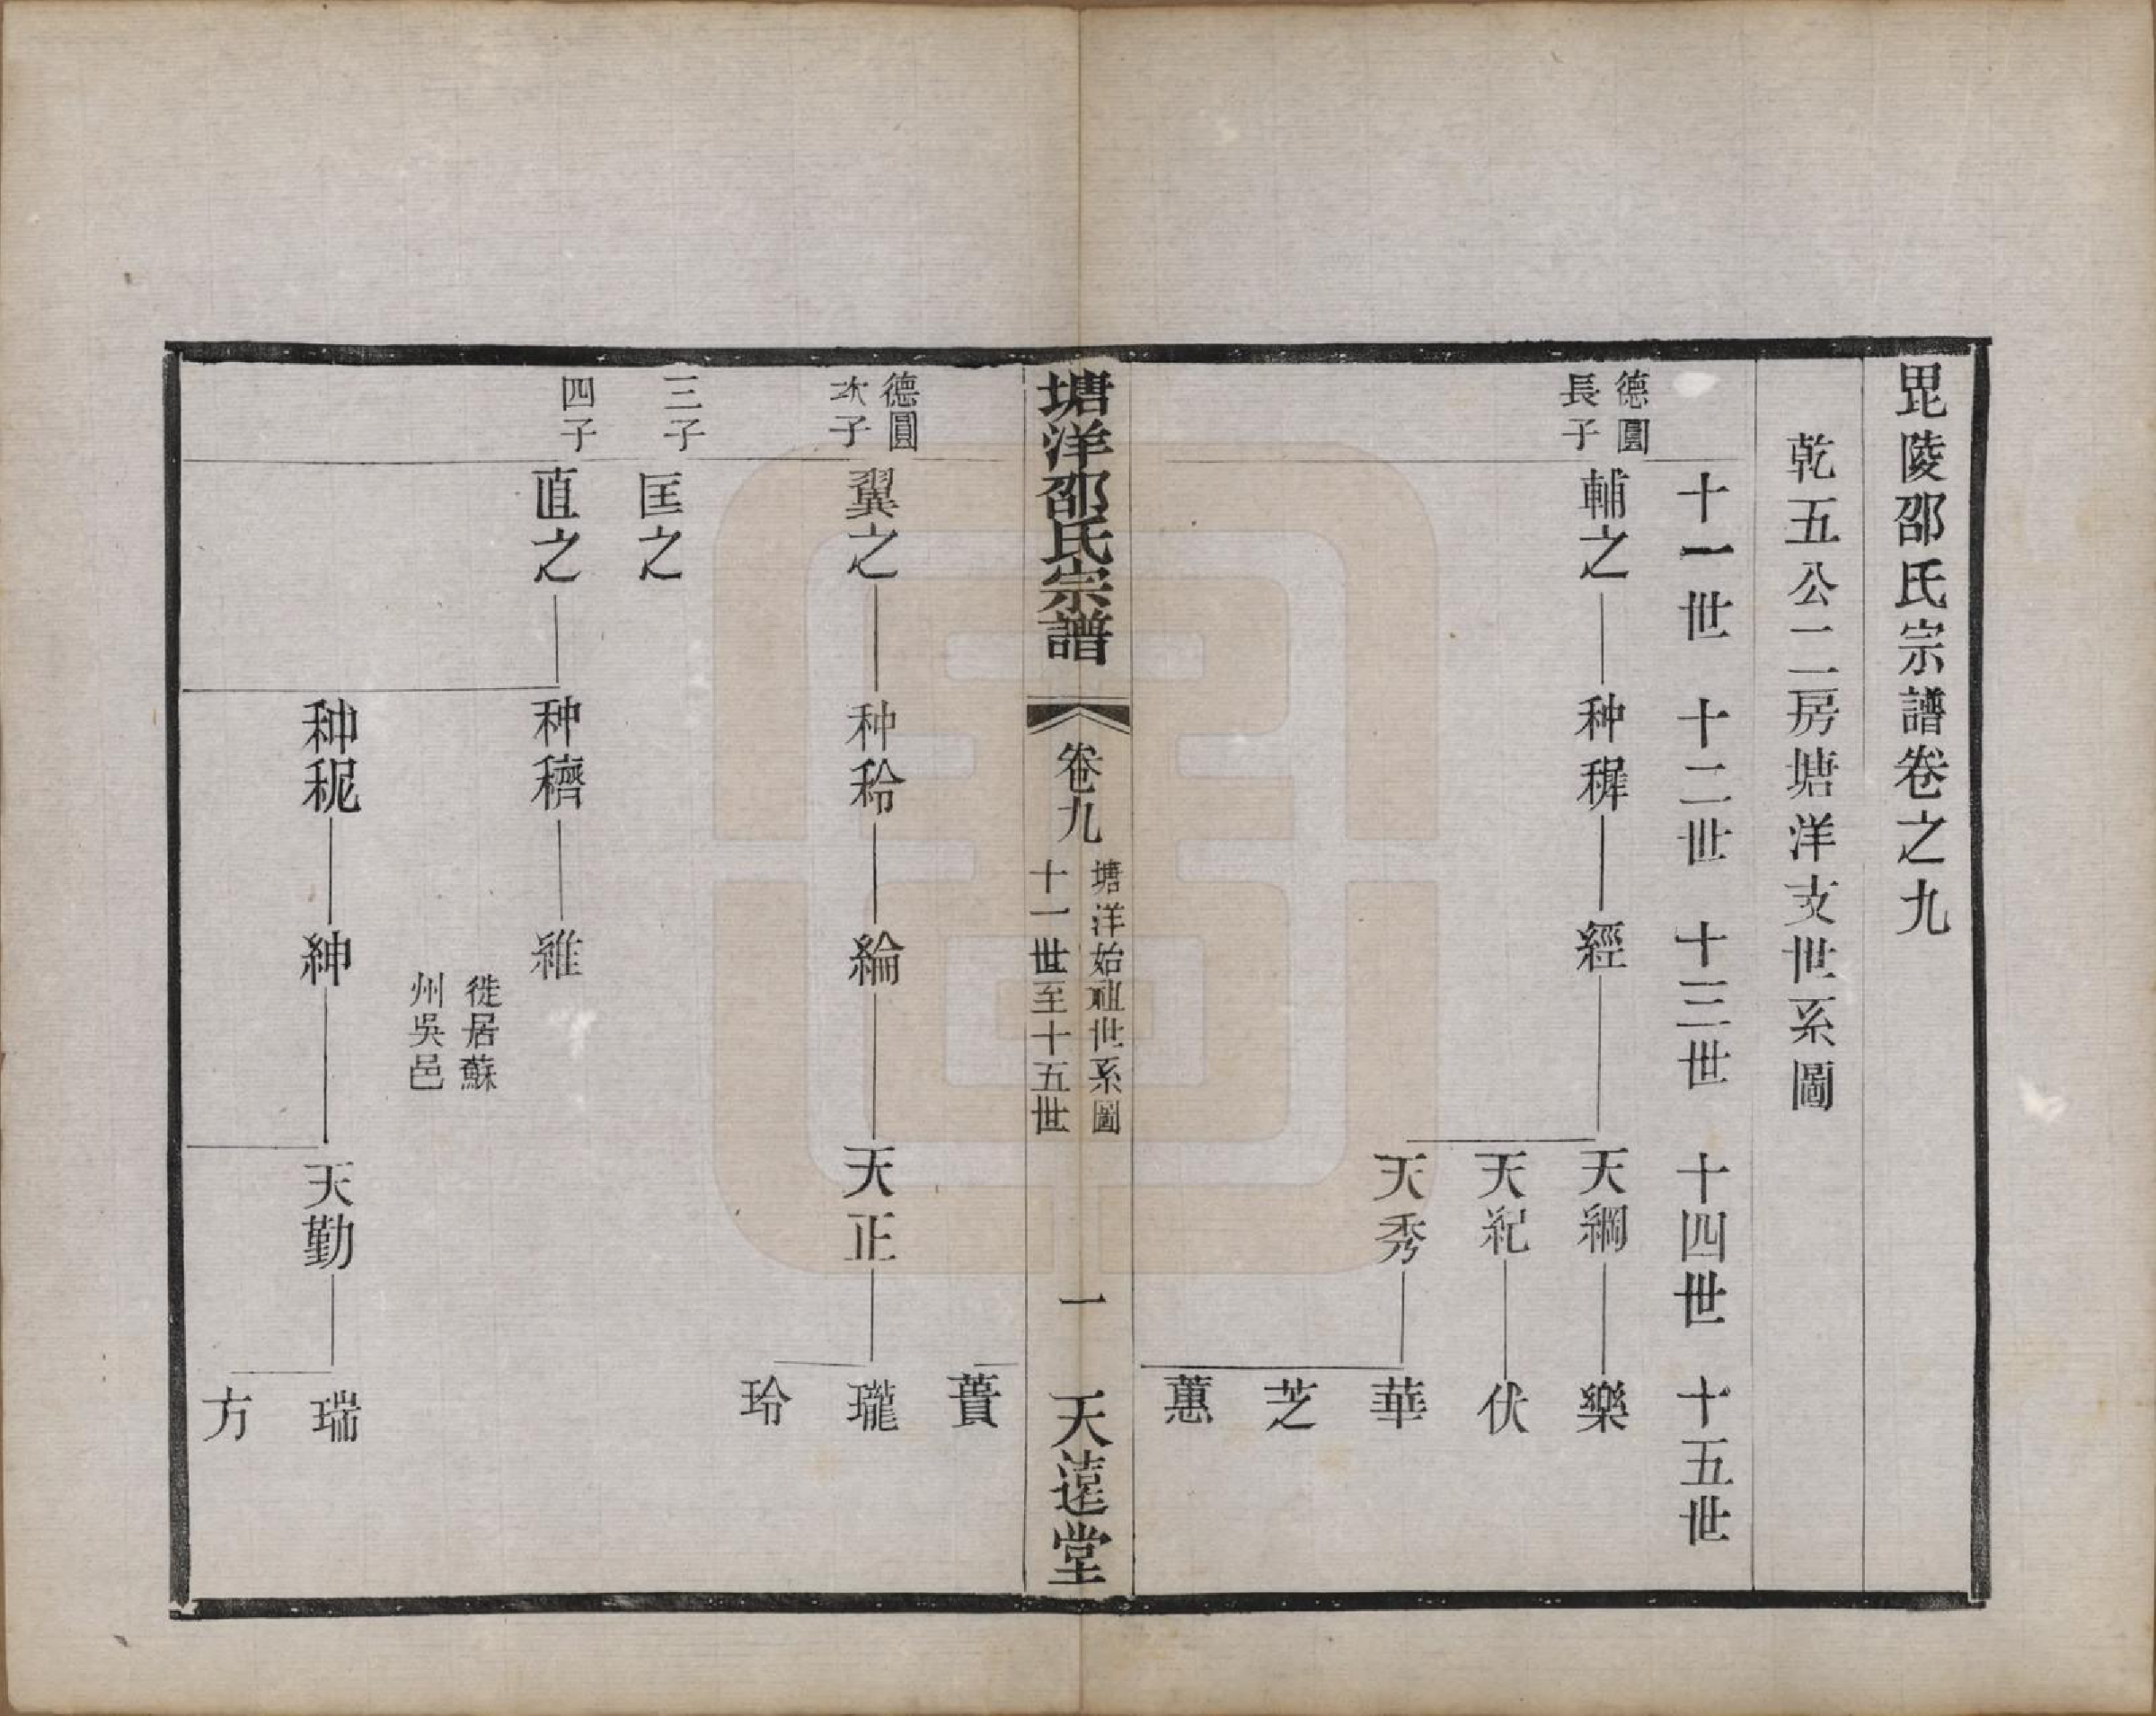 毘陵邵氏宗譜卷之九
乾五公二房塘洋支世系圖
十一世　十二世　十三世　十四世　十五世
德圓
長子
輔之　种稺　經　天綱　樂
天紀　伏
天秀　華
芝
蕙
塘洋邵氏宗譜　卷九　塘洋始祖世系圖
十一世至十五世　一　天遠堂
蕡
德圓
次子
翼之　种秢　綸　天正　瓏
玲
三子　匡之
四子　直之　种穧　維
徙居蘇
州吳邑
种秜　紳　天勤　瑞
方